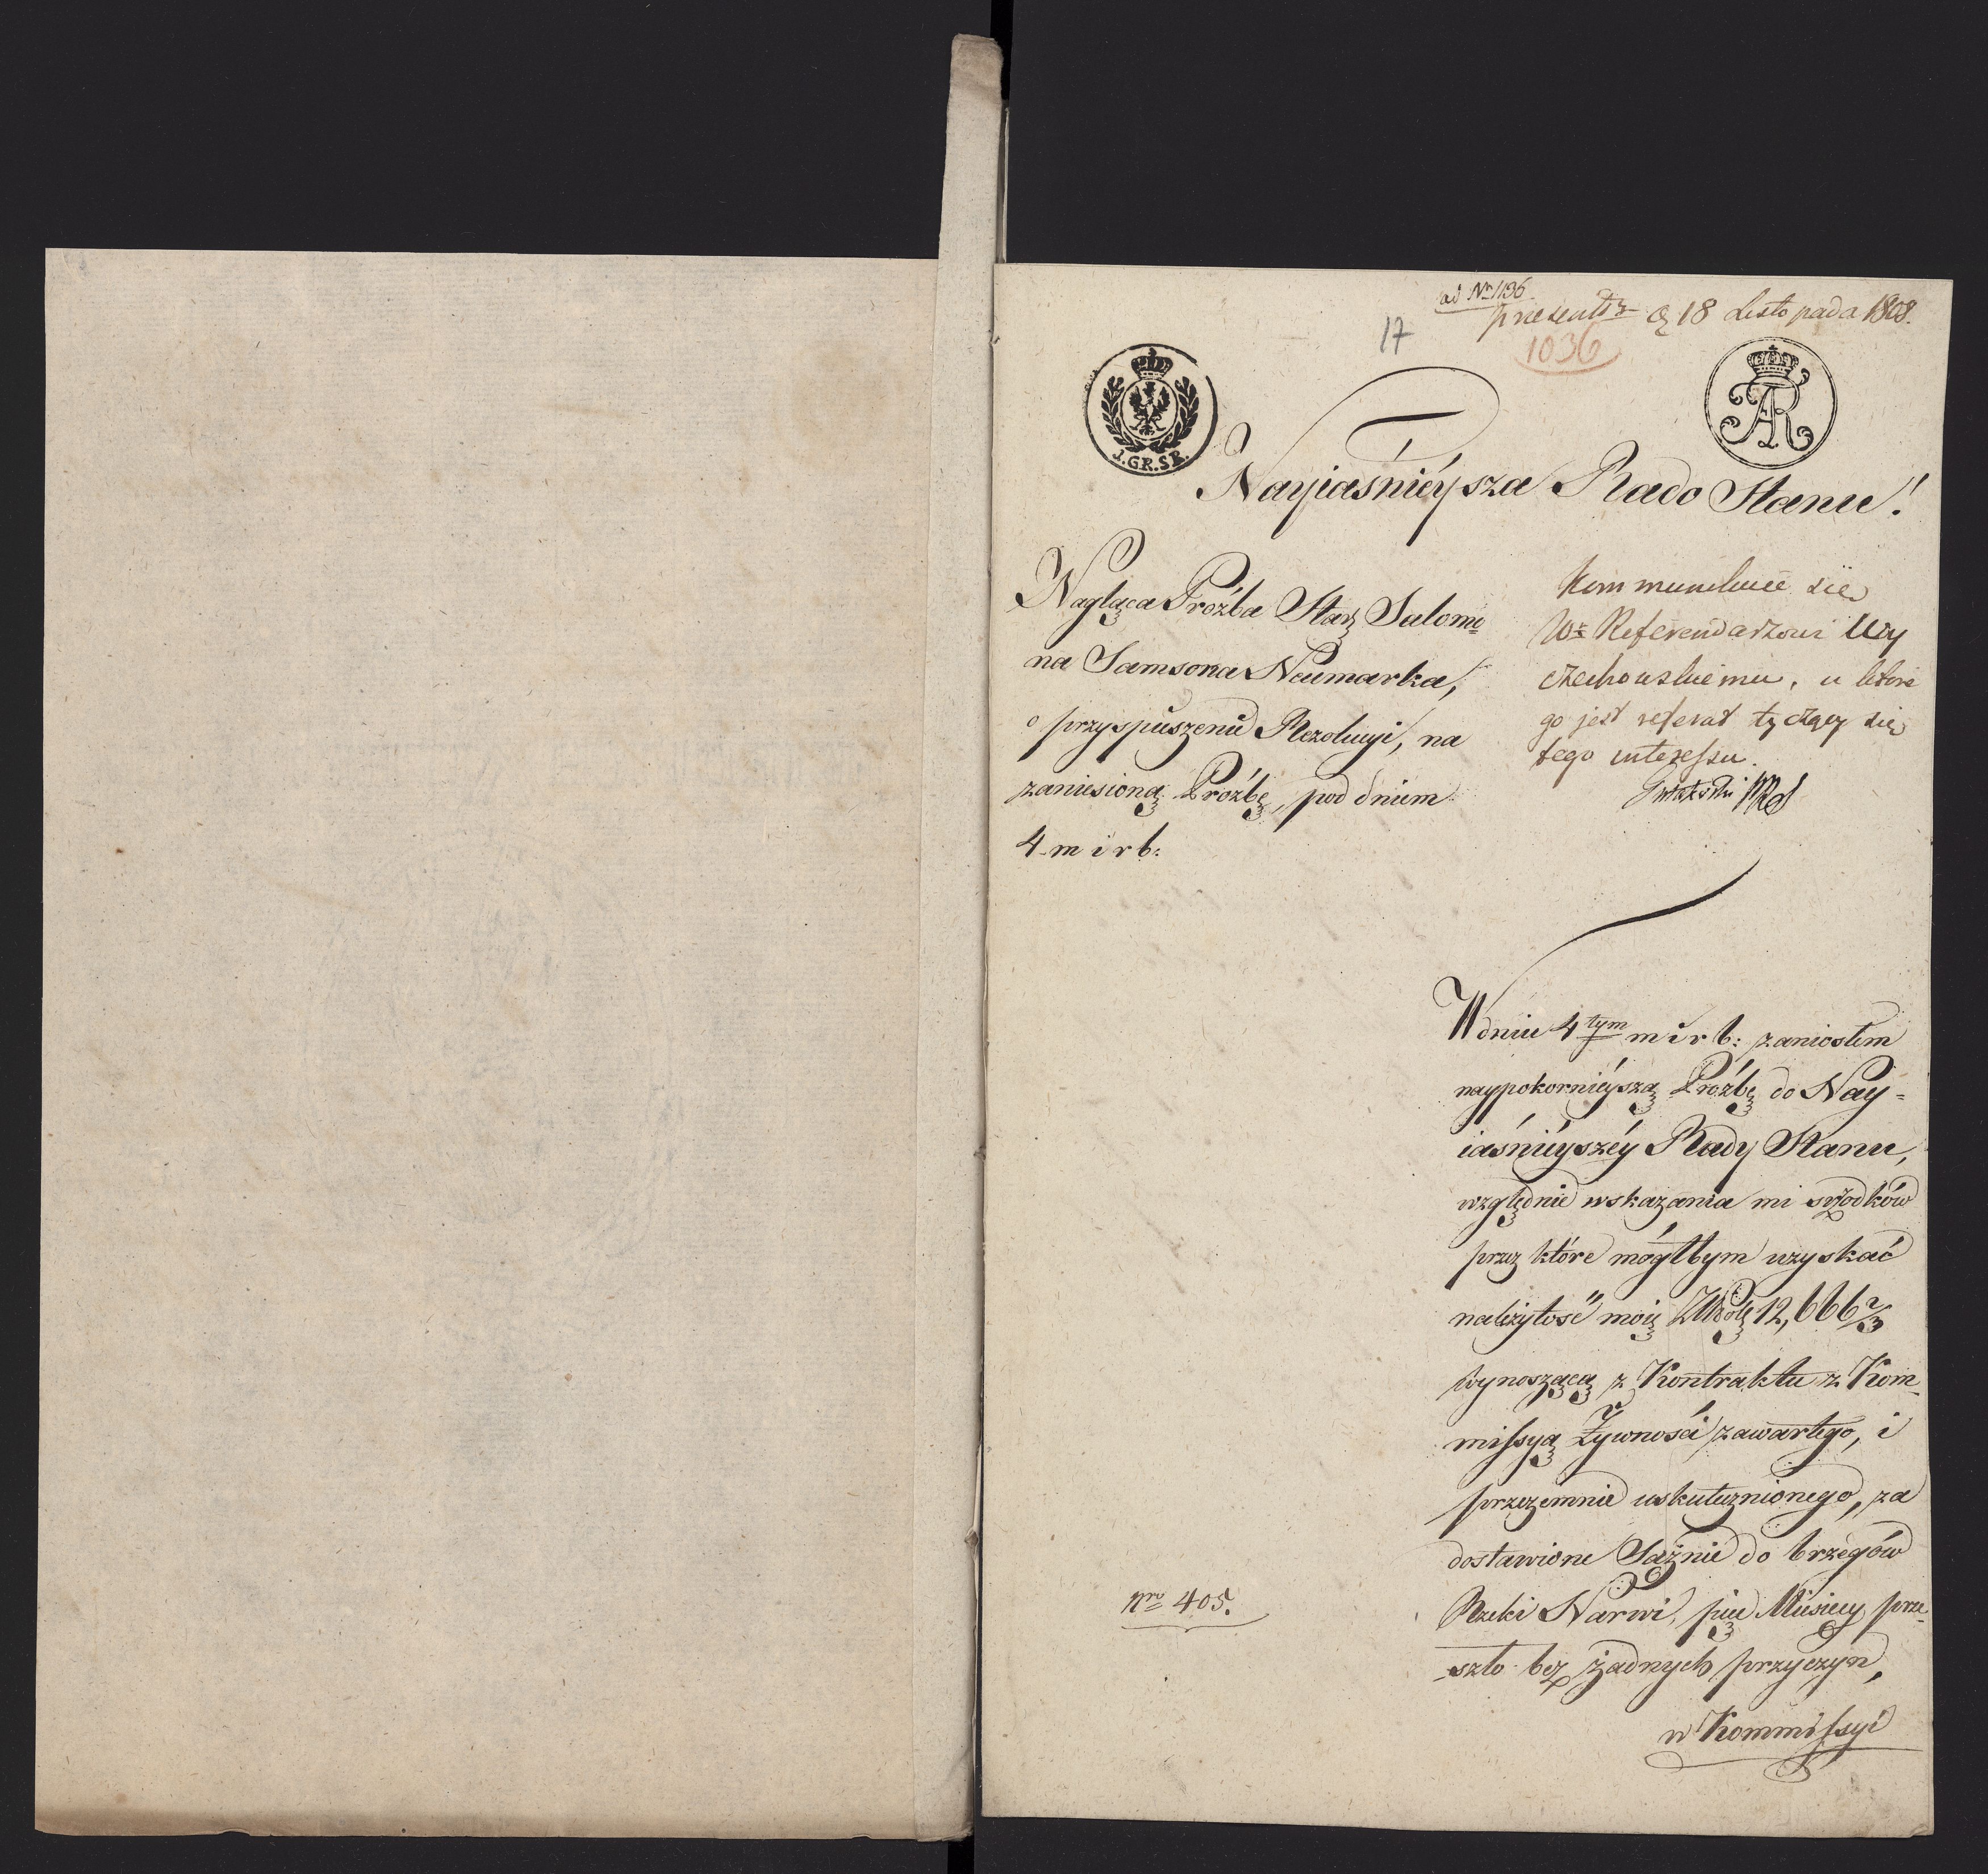 ad Nr 1196
17
1036
d 18 Listopada 1808.
1.GR.SR.
Nayiaśnieysza Rado Stanu!
Nagląca Prozba Star Salomo=
na Samsona Neumarka,
o przyspuszenie Rezolucyi, na
zaniesioną Prozbę, pod dniem
4 m i r b:
Kommunikuie się
Wu Referendarzowi Woy
czechowskiemu, u które
go jest referat tyczący się
tego interessu.
W dniu 4tym m i r b: zaniosłem
naypokornieyszą Prozbę do Nay=
iaśnieyszéy Rady Stanu,
względnie wskazania mi srzodków
przez które mógłbym uzyskać
należytość moię 12,666 2/3
wynoszącą z Kontraktu z Kom=
missyą Żywności zawartego, i
przezemnie uskutecznionego, za
dostawione Sążnie do brzegów
Rzeki Narwi, pięć Miesięcy prze=
szło bez żadnych przyczyn,
w Kommissyi
Nro 405.